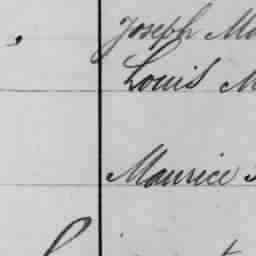 Joseph Mo
Louis M
Maurice